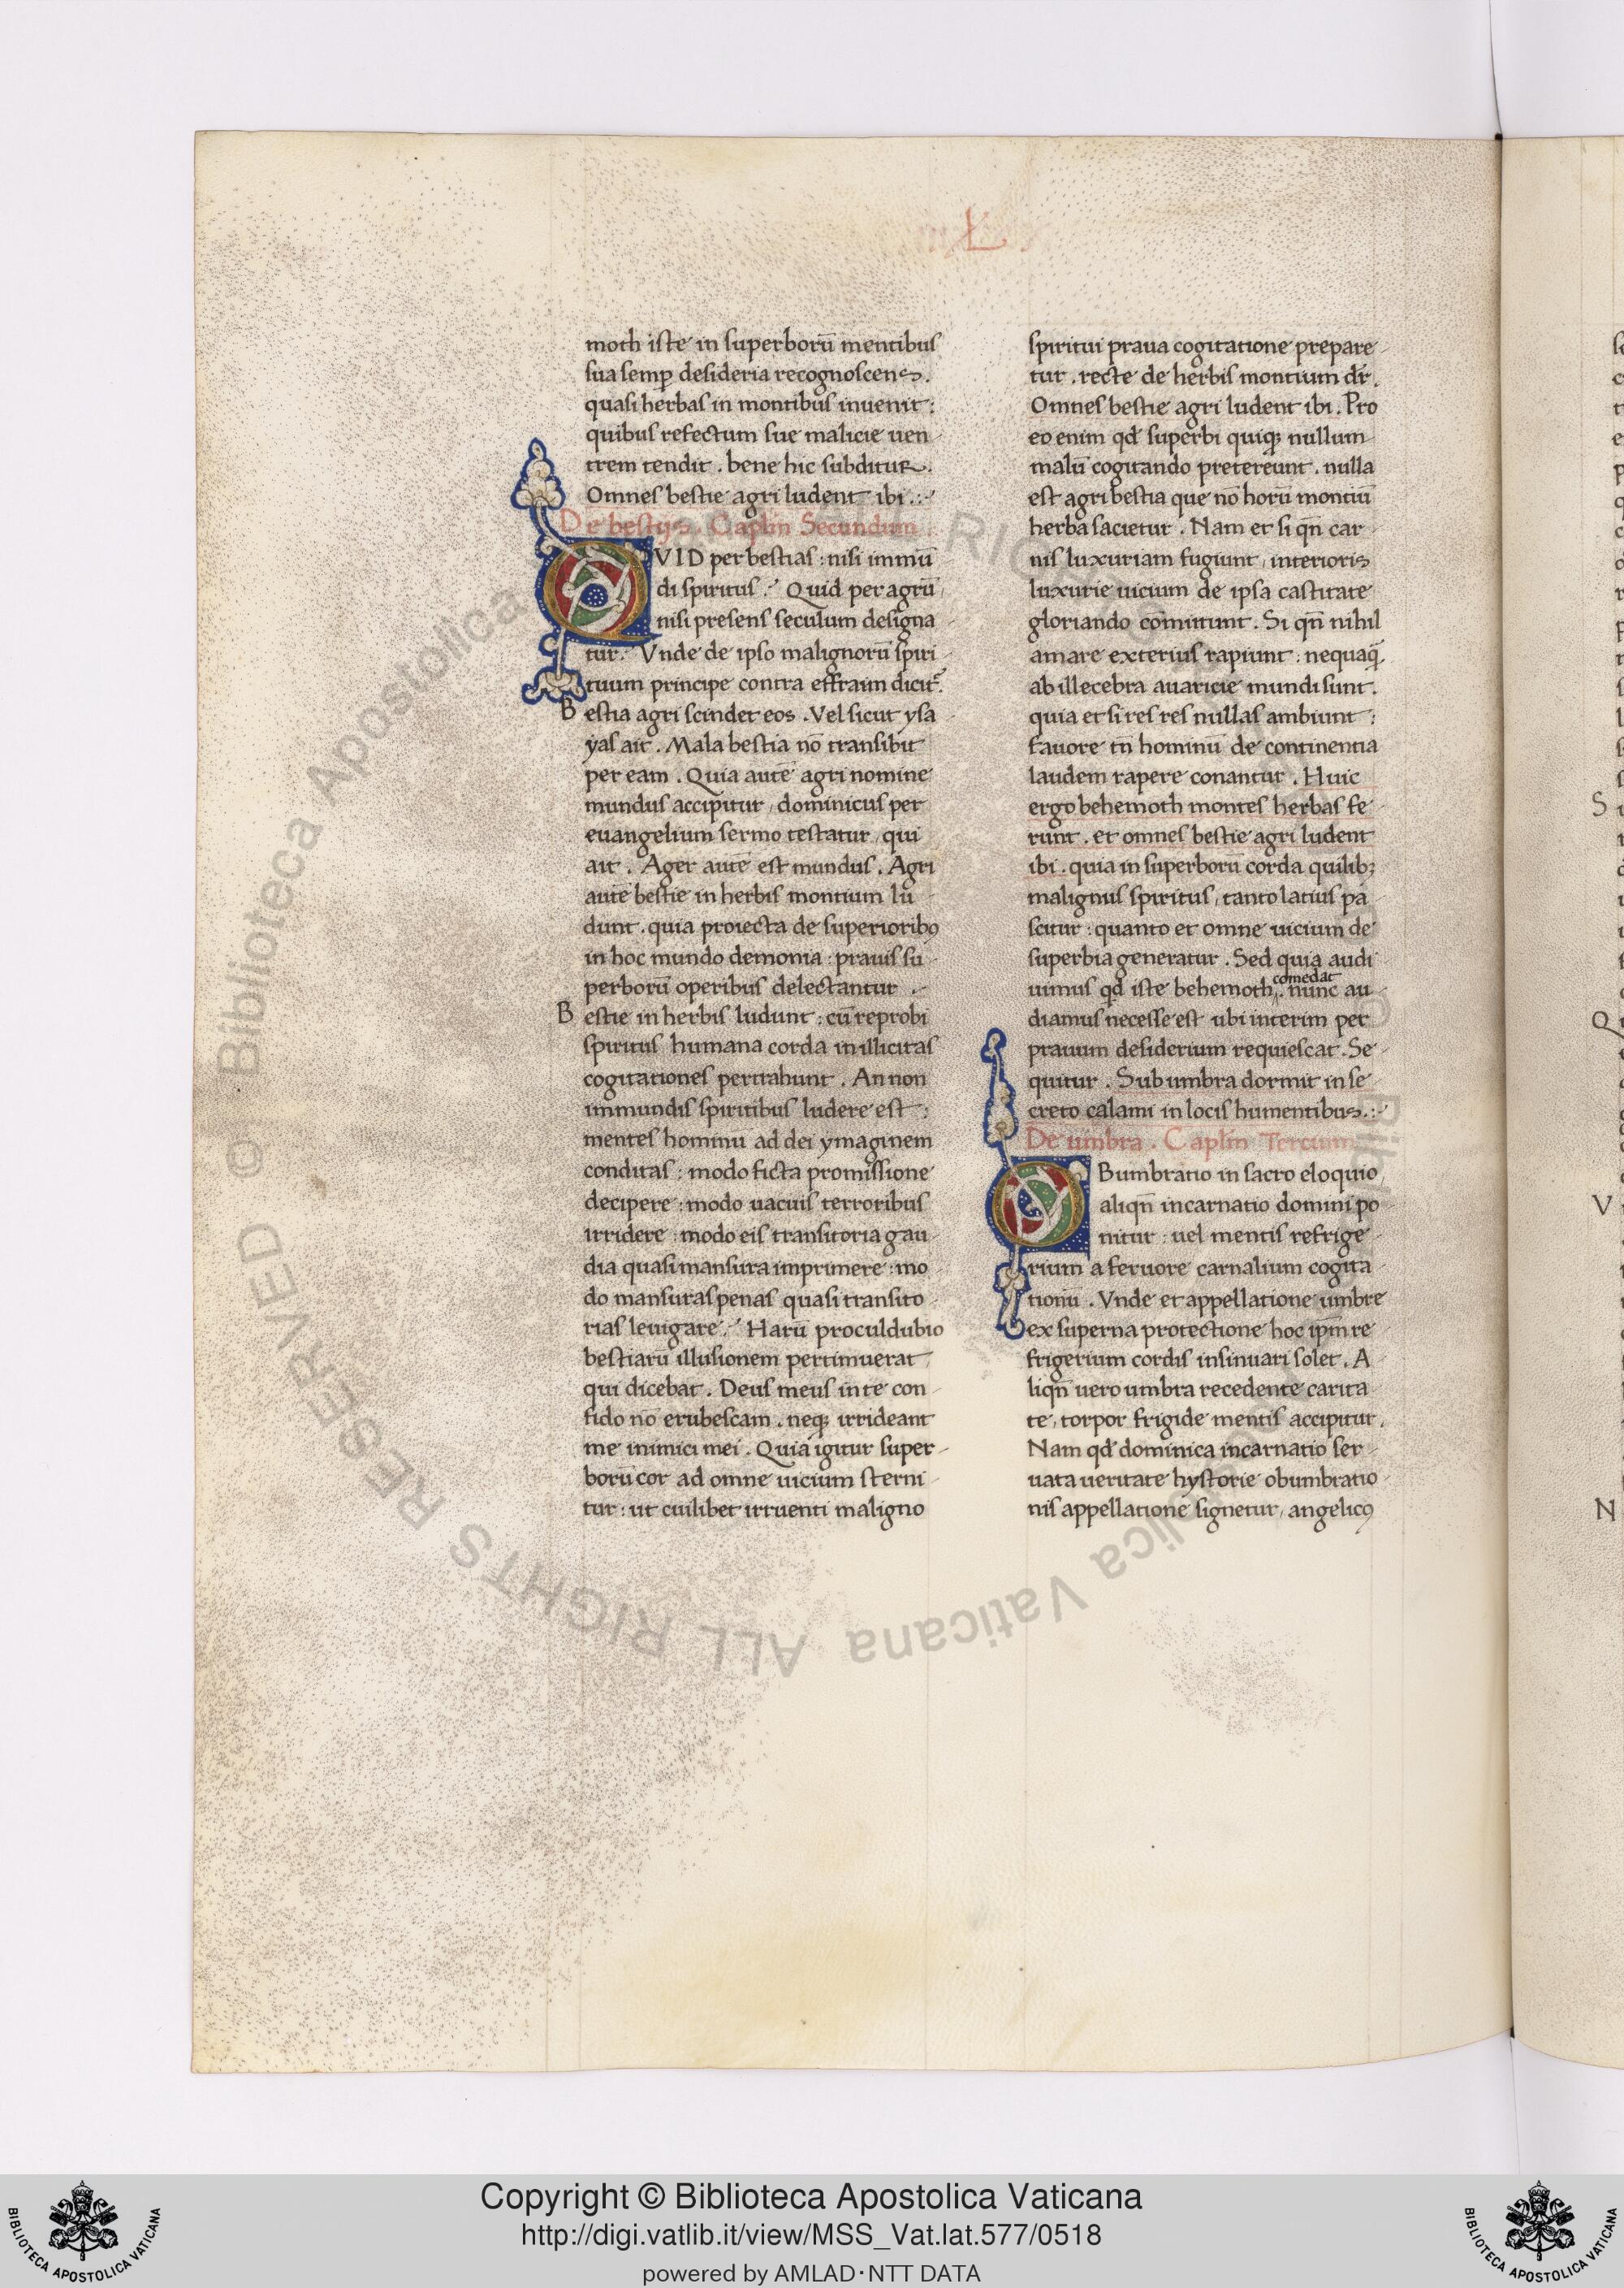 Ł
moth iste in superborū mentibus
sua semp̄ desideria recognoscens.
quasi herbas in montibus inuenit:
quibus refectum sue malicie uen-
trem tendit. bene hic subditur.
Omnes bestie agri ludent ibi.:-
De bestijs. Caplm̄ Secundum.
QVID per bestias: nisi immū
di spiritus? Quid per agrū,
nisi presens seculum designa-
tur? Vnde de ipso malignorū spiri-
tuum principe contra effraim dicit̄.
Bestia agri scindet eos. Vel sicut ysa-
yas ait. Mala bestia nō transibit
per eam. Quia autē agri nomine
mundus accipitur, dominicus per
euangelium sermo testatur, qui
ait. Ager autē est mundus. Agri
autē bestie in herbis montium lu-
dunt. quia proiecta de superioribꝯ
in hoc mundo demonia: prauis su-
perborū operibus delectantur.-
Bestie in herbis ludunt: cū reprobi
spiritus humana corda in illicitas
cogitationes pertrahunt. An non
immundis spiritibus ludere est:
mentes hominū ad dei ymaginem
conditas: modo ficta promissione
decipere: modo uacuis terroribus
irridere: modo eis transitoria gau-
dia quasi mansura imprimere: mo-
do mansuras penas quasi transito-
rias leuigare? Harū proculdubio
bestiarū illusionem pertimuerat
qui dicebat. Deus meus in te con-
fido nō erubescam. neqꝫ irrideant
me inimici mei. Quia igitur super-
borū cor ad omne uicium sterni-
tur: ut cuilibet irruenti maligno
spiritui praua cogitatione prepare-
tur. recte de herbis montium dr̄.
Omnes bestie agri ludent ibi. Pro
eo enim qd̄ superbi quiqꝫ nullum
malū cogitando pretereunt. nulla
est agri bestia que nō horū montiū
herba sacietur. Nam et si qn̄ car-
nis luxuriam fugiunt, interioris
luxurie uicium de ipsa castitate
gloriando cōmittunt. Si qn̄ nihil
amare exterius rapiunt: nequaq̄
ab illecebra auaricie mundi sunt.
quia etsi res res nullas ambiunt:
fauore tn̄ hominū de continentia
laudem rapere conantur. Huic
ergo behemoth montes herbas fe-
runt. et omnes bestie agri ludent
ibi. quia in superborū corda quilibꝫ
malignus spiritus, tanto latius pa-
scitur: quanto et omne uicium de
superbia generatur. Sed quia audi-
comedat
uimus qd̄ iste behemoth. nunc au-
diamus necesse est ubi interim per
prauum desiderium requiescat. Se-
quitur. Sub umbra dormit in se-
creto calami in locis humentibus.:-
De umbra. Caplm̄ Tercium
OBumbratio in sacro eloquio,
aliqn̄ incarnatio domini po-
nitur: uel mentis refrige-
rium a feruore carnalium cogita-
tionū. Vnde et appellatione umbre
ex superna protectione hoc ip̄m re-
frigerium cordis insinuari solet. A-
liqn̄ uero umbra recedente carita-
te, torpor frigide mentis accipitur.
Nam qd̄ dominica incarnatio ser-
uata ueritate hystorie obumbratio-
nis appellatione signetur, angelicꝯ
Copyright © Biblioteca Apostolica Vaticana
http://digi.vatlib.it/view/MSS_Vat.lat.577/0518
powered by AMLAD·NTT DATA